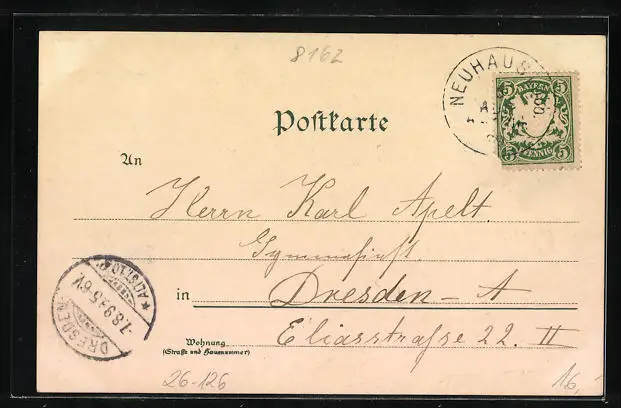 8162
NEUHAUS
BAYERN
5 5
5 PFENNIG 5
Postkarte
An
Herrn Karl Apelt.
Gymnasiast.
in Dresden-A
Eliasstraße 22. II
Wohnung
(Straße und Hausnummer)
DRESDEN
* ALTST. 10
26-126
16,-